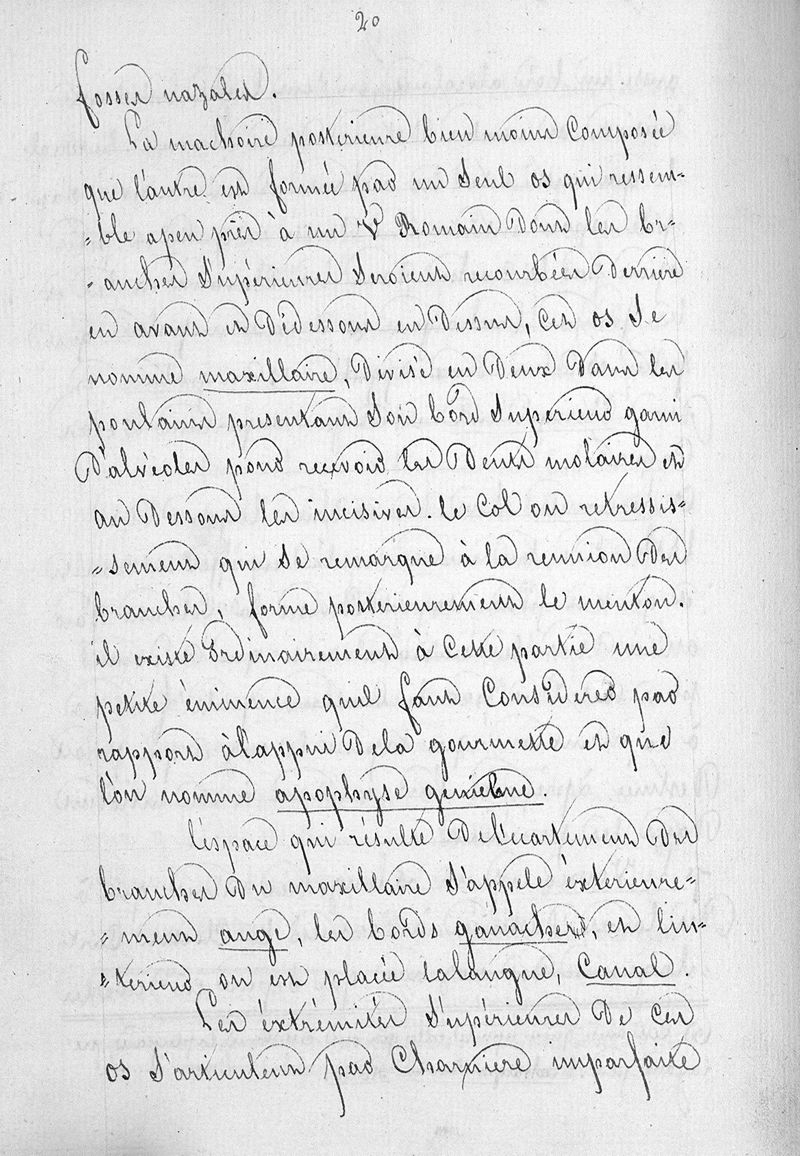 20
fosses nazales.
La machoire posterieure bien moins Composée
que l'autre est formée par un Seul os qui ressem-
=ble apeu près à un V Romain Dont les br-
=anches Supérieures Seroient recourbées Derrière
en avant et Dédessous en Dessus, Cet os Se
nomme maxillaire, Divisé en Deux Dans les
poulains presentant Son bord Superieur garni
D'alvéoles pour recevoir les Dents molaires et
au Dessous les incisives. le Col ou retressis=
=sement qui Se remarque à la reunion Des
branches, forme posterieurement le menton.
il existe Ordinairement à Cette partie une
petite éminence quil faut Considerer par
rapport àlappui Dela gourmette et que
l'on nomme apophyse genienne.
lespace qui résulte De l'écartement Des
branches Du maxillaire S'appele éxterieure-
=ment auge, les bords ganaches, et lin-
=terieur ou est placée lalangue, Canal
Les éxtrémités Supérieures De Cet
os S'articulent par Charniere imparfaite